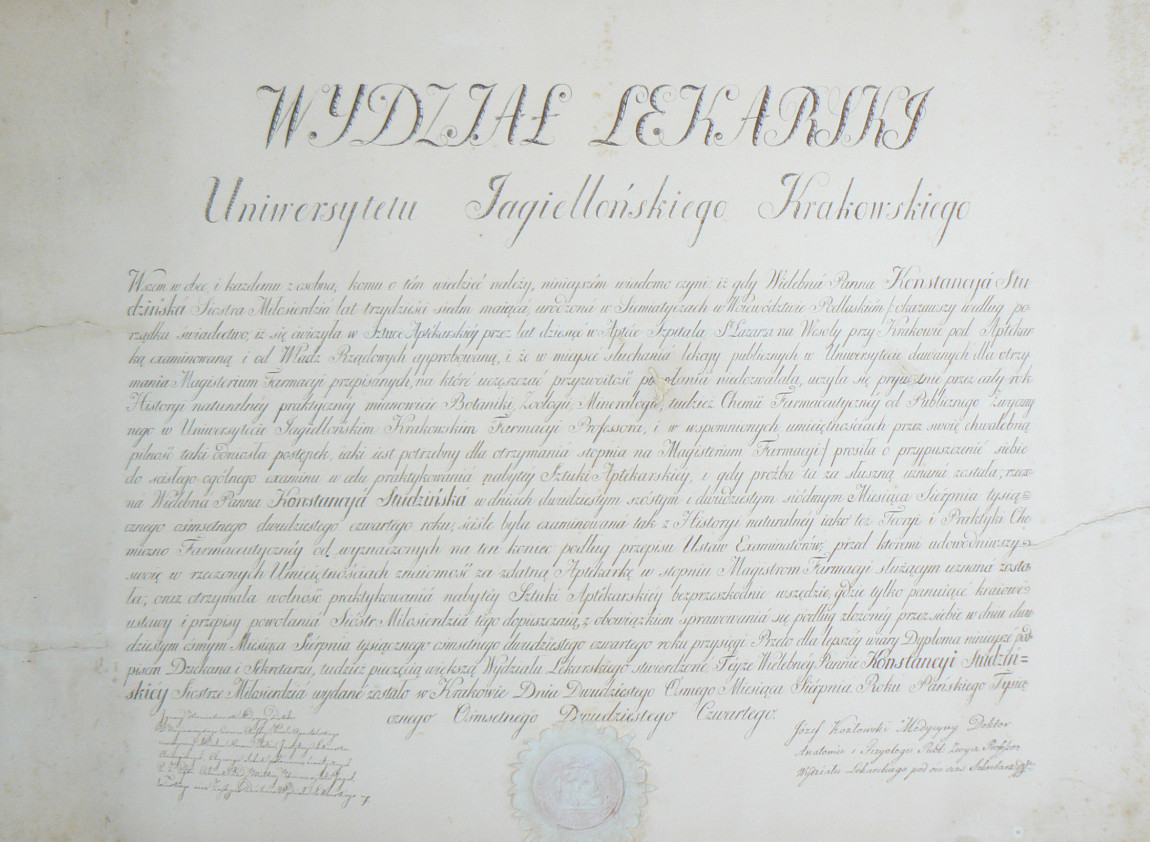 WYDZIAŁ LEKARSKI
Uniwersytetu Jagiellońskiego Krakowskiego
Wszem w obec, i każdemu z osobna, komu o tém wiedzieć należy, ninieyszém wiadomo czyni, iż gdy Wielebná Panna Konstancyjá Stu-
dzińská Siostra Miłosierdziá lat trzydzieści siedm maiąca, urodzoná w Siemiatyczach w Woiewództwie Podlaskiém /:okazawszy według po-
rządku świadectwo, iż się ćwiczyła w Sztuce Aptékarskiéy przez lat dziesięć w Aptéce Szpitala Sgo Lázara na Wesoły przy Krakowie pod Aptekar
ką examinowaną i od Władz Rządowych approbowaną, i że w mieysce słuchaniá lekcyy publicznych w Uniwersytecie dawanych dla otrzy
maniá Magisterium Farmacyi przepisanych, na któré uczęszczać przyzwoitość powołania niedozwalała, uczyła się prywatnie przez cały rok
Historyi naturalnéy praktycznéy mianowicie Botaniki, Zoologii, Mineralogii, tudzież Chemii Farmaceutycznéy od Publicznego Zwyczay
nego w Uniwersytecie Jagiellońskim Krakowskim Farmacyi Professora, i w wspomnionych umieiętnościach przez swoię chwalebną
pilność taki odniosła postępek, iaki iest potrzebny dla otrzymania stopnia na Magisterium Farmacyi:/ prosiła o przypuszczenié siebie
do ścisłego ogólnego examinu w celu praktykowaniá nabytéy Sztuki Aptékarskiéy, i gdy proźba ta za słuszną uznaná została; rzeczo-
ná Wielebná Panna Konstancyjá Studzińska w dniach dwudziestym szóstym i dwudziestym siódmym Miesiąca Sierpnia tysią-
cznego ośmsetnego dwudziestego czwartego roku, ściśle była examinowaná tak z Historyi naturalnéy iako też Teoryi i Praktyki Che
miczno Farmaceutycznéy od wyznaczonych na ten koniec podług przepisu Ustaw Examinatorów, przed któremi udowodniwszy
swoię w rzeczonych Umieiętnościach znaiomość za zdatną Aptékarkę w stopniu Magistrom Farmacyi służącym uznaná zosta-
ła; oraz otrzymała wolność praktykowaniá nabytéy Sztuki Aptékarskiéy bezprzeszkodnie wszędzie, gdzie tylko panuiącé kraiowé
ustawy i przepisy powołaniá Sióstr Miłosierdziá tego dopuszczaią, z obowiązkiem sprawowaniá się podług złożonéy przez siebie w dniu dwu
dziestym ósmym Miesiąca Sierpnia tysiącznego ośmsetnego dwudziestego czwartego roku przysięgi. Przeto dla lepszéy wiary Dyploma ninieysze pod-
pisem Dziekana i Sekretarza, tudzież pieczęcią większą Wydziału Lekarskiego stwierdzoné Teyże Wielebnéy Pannie Konstancyi Studziń-
skiéy Siostrze Miłosierdzia wydané zostało w Krakowie Dnia Dwudziestego Osmego Miesiąca Sierpnia Roku Pańskiego Tysią
cznego Ośmsetnego Dwudziestego Czwartego.
Józef Kozłowski Medycyny Doktor
Anatomii i Fizyologii Publ. Zwycz. Professor
Wydziału Lekarskiego pod ów czas Sekretarz